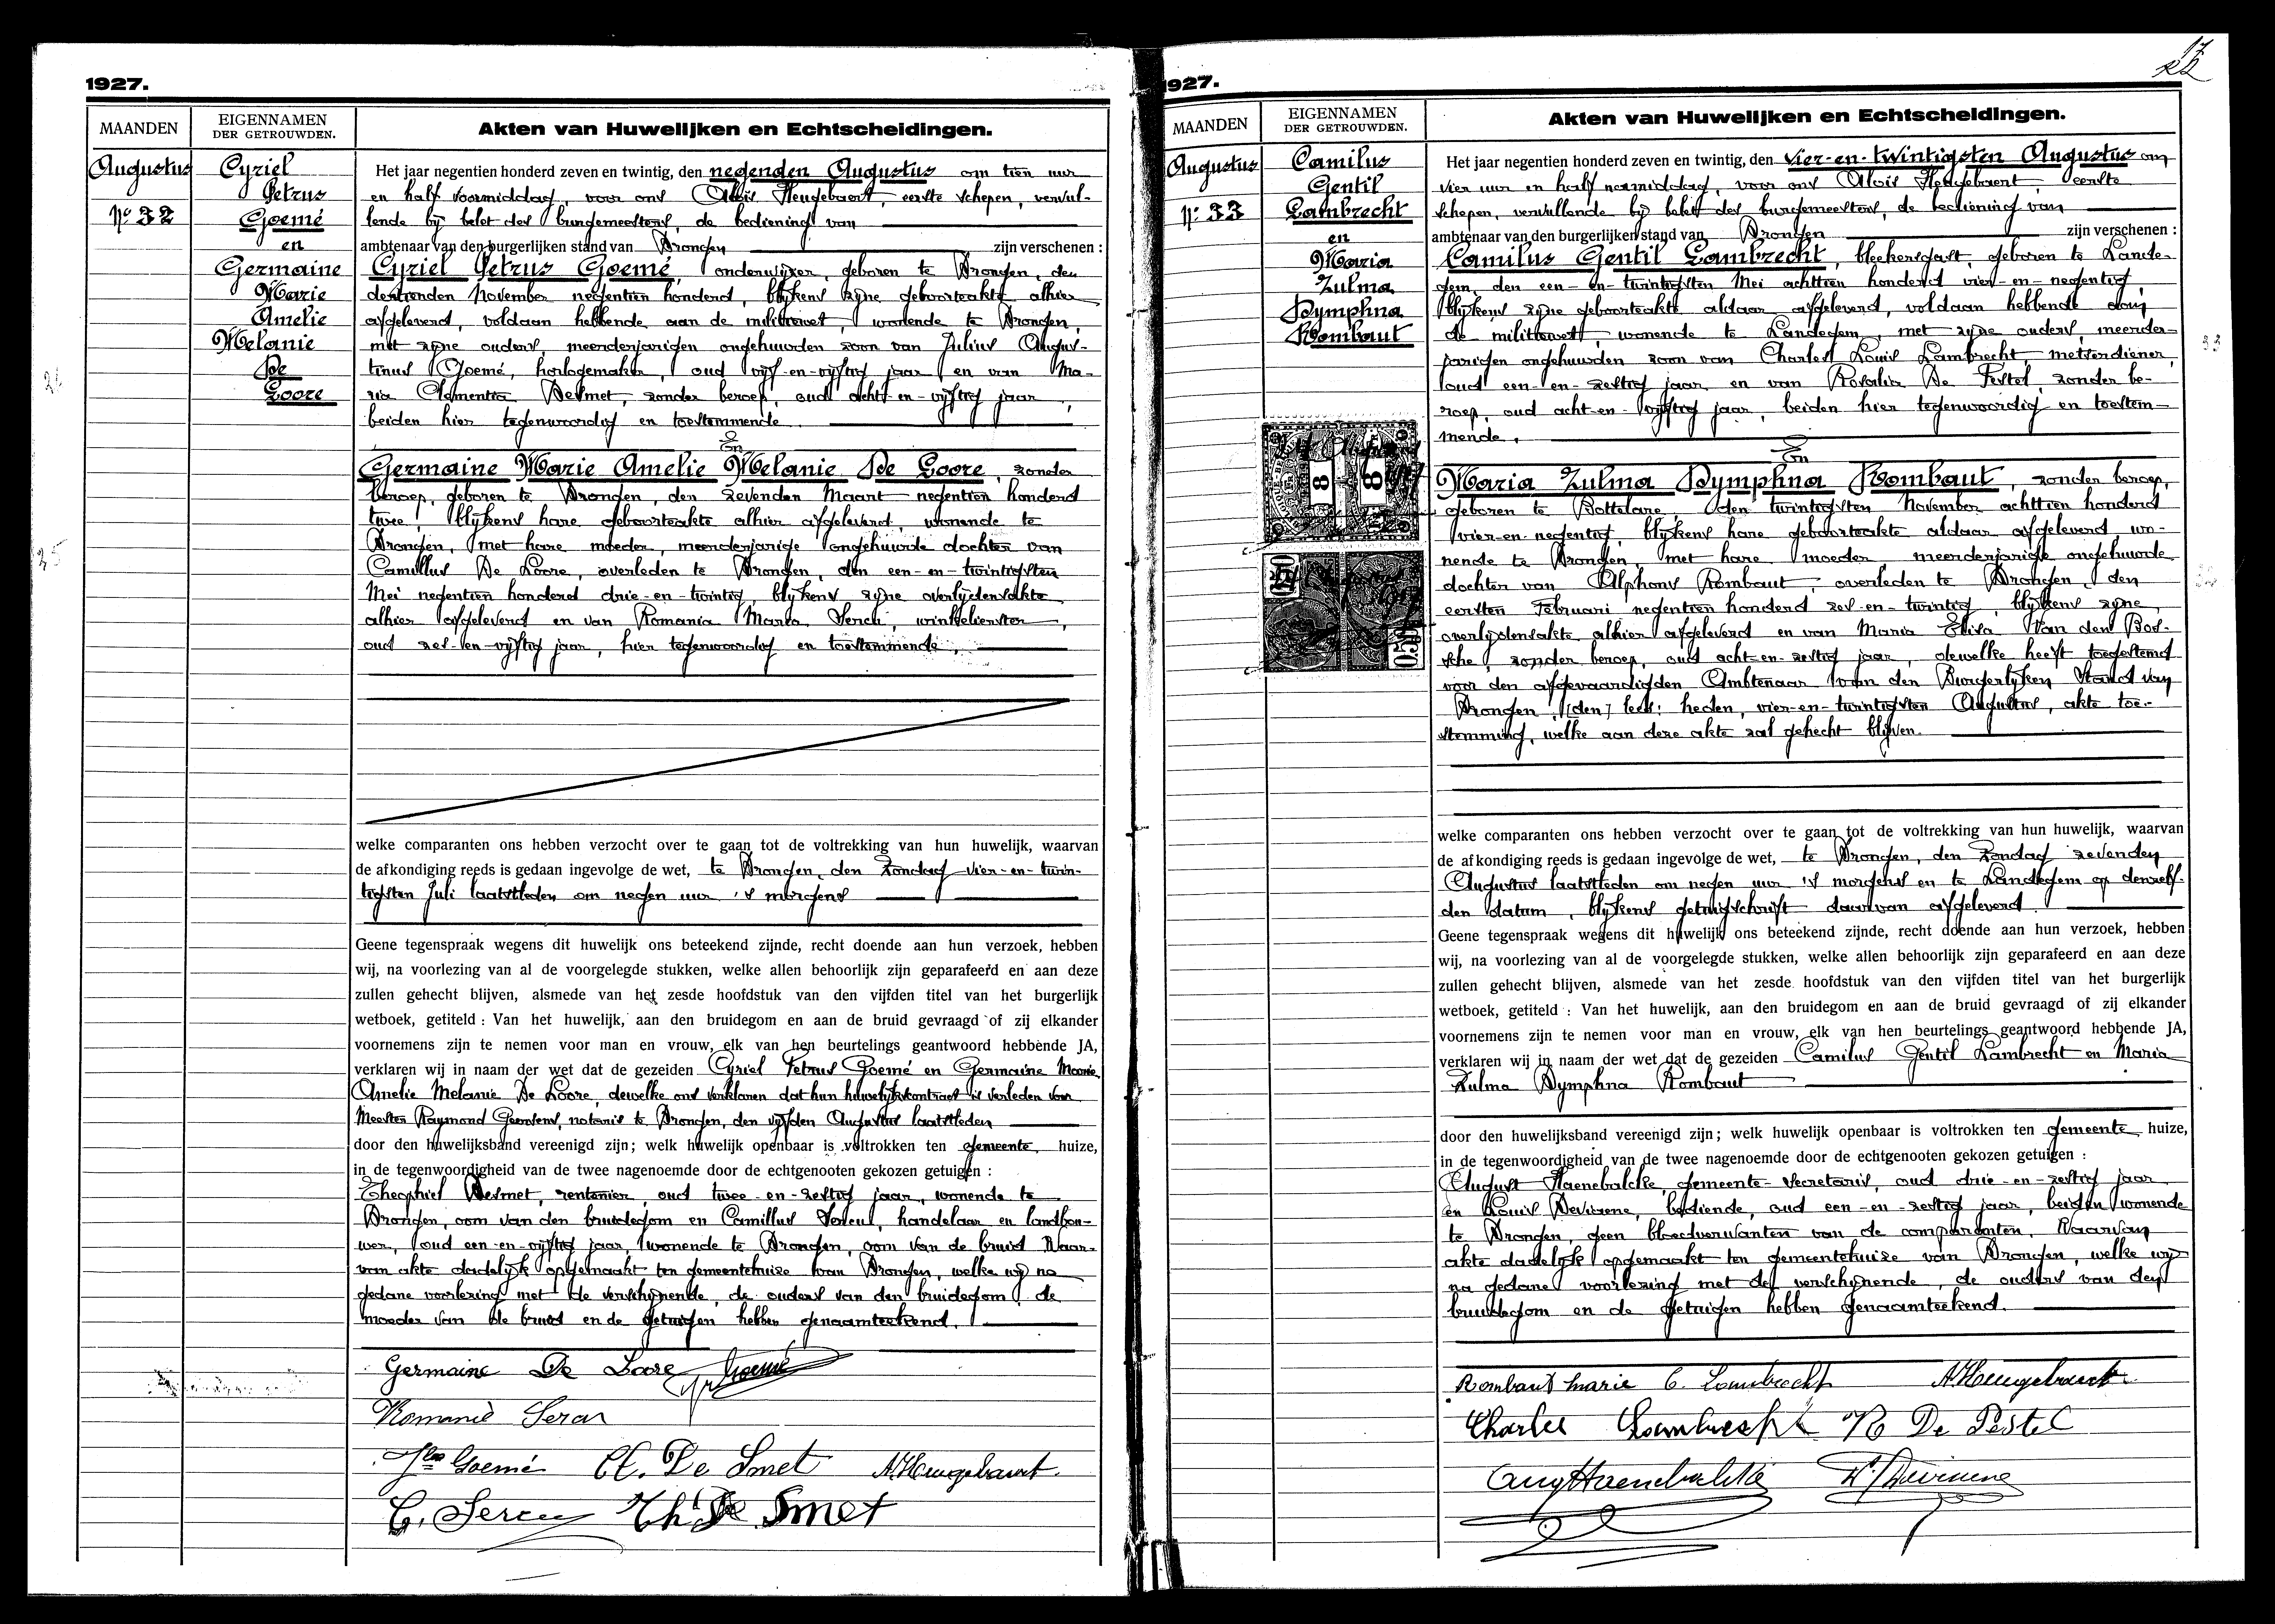 1927.
MAANDEN
EIGENNAMEN
DER GETROUWDEN.
Akten van Huwelijken en Echtscheidingen.
Augustus
Nº 32
Cyriel
Petrus
Goemé
en
Germaine
Marie
Amelie
Melanie
De
Loore
Het jaar negentien honderd zeven en twintig, den negenden Augustus om tien uur
en half voormiddag, voor ons Aloïs Heugebaert, eerste schepen, vervul-
lende bij belet des burgemeesters, de bediening van
ambtenaar van den burgerlijken stand van Drongen zijn verschenen :
Cyriel Petrus Goemé, onderwijzer, geboren te Drongen, den
dertienden November negentien honderd, blijkens zijne geboorteakte alhier
afgeleverd, voldaan hebbende aan de militiewet, wonende te Drongen,
met zijne ouders, meerderjarigen ongehuwden zoon van Julius Augus-
tinus Goemé, horlogemaker, oud vijf-en-vijftig jaar en van Ma-
ria Clementia Desmet, zonder beroep, oud acht-en-vijftig jaar,
beiden hier tegenwoordig en toestemmende.
En
Germaine Marie Amelie Melanie De Loore, zonder
beroep, geboren te Drongen, den zevenden Maart negentien honderd
twee, blijkens hare geboorteakte alhier afgeleverd, wonende te
Drongen, met hare moeder, meerderjarige ongehuwde dochter van
Camillus De Loore, overleden te Drongen, den een-en-twintigsten
Mei negentien honderd drie-en-twintig, blijkens zijne overlijdensakte
alhier afgeleverd en van Romania Maria, winkelierster,
oud zes-en-vijftig jaar, hier tegenwoordig en toestemmende.
welke comparanten ons hebben verzocht over te gaan tot de voltrekking van hun huwelijk, waarvan
de afkondiging reeds is gedaan ingevolge de wet, te Drongen, den Zondag vier-en-twin-
tigsten Juli laatstleden om negen uur 's morgens
Geene tegenspraak wegens dit huwelijk ons beteekend zijnde, recht doende aan hun verzoek, hebben
wij, na voorlezing van al de voorgelegde stukken, welke allen behoorlijk zijn geparafeerd en aan deze
zullen gehecht blijven, alsmede van het zesde hoofdstuk van den vijfden titel van het burgerlijk
wetboek, getiteld : Van het huwelijk, aan den bruidegom en aan de bruid gevraagd of zij elkander
voornemens zijn te nemen voor man en vrouw, elk van hen beurtelings geantwoord hebbende JA,
verklaren wij in naam der wet dat de gezeiden Cyriel Petrus Goemé en Germaine Marie
Amelie Melanie De Loore, dewelke ons verklaren dat hun huwelijkskontract is verleden voor
Meester Raymond, notaris te Drongen, den vijfden Augustus laatstleden
door den huwelijksband vereenigd zijn; welk huwelijk openbaar is voltrokken ten gemeente huize,
in de tegenwoordigheid van de twee nagenoemde door de echtgenooten gekozen getuigen :
Theophiel Desmet, rentenier, oud twee-en-zestig jaar, wonende te
Drongen, oom van den bruidegom en Camillus, handelaar en landbou-
wer, oud een-en-vijftig jaar, wonende te Drongen, oom van de bruid. Waar-
van akte dadelijk opgemaakt ten gemeentehuize van Drongen, welke wij na
gedane voorlezing met de verschijnende, de ouders van den bruidegom, de
moeder van de bruid en de getuigen hebben genaamteekend.
Germaine De Loore Goemé
Romanie
Goemé Cl. De Smet A. Heugebaert.
C. Th De Smet
1927.
MAANDEN
EIGENNAMEN
DER GETROUWDEN.
Akten van Huwelijken en Echtscheidingen.
Augustus
Nº 33
Camilus
Gentil
Lambrecht
en
Maria
Zulma
Dymphna
Rombaut
Het jaar negentien honderd zeven en twintig, den vier-en-twintigsten Augustus om
vier uur en half namiddag, voor ons Aloïs Heugebaert, eerste
schepen, vervullende bij belet des burgemeesters, de bediening van
ambtenaar van den burgerlijken stand van Drongen zijn verschenen :
Camilus Gentil Lambrecht, bleekersgast, geboren te Lande-
gem, den een-en-twintigsten Mei achttien honderd vier-en-negentig,
blijkens zijne geboorteakte aldaar afgeleverd, voldaan hebbende aan
de militiewet, wonende te Landegem, met zijne ouders, meerder-
jarigen ongehuwden zoon van Charles Louis Lambrecht, metserdiener,
oud een-en-zestig jaar, en van Rosalia De Pestel, zonder be-
roep, oud acht-en-vijftig jaar, beiden hier tegenwoordig en toestem-
mende.
En
Maria Zulma Dymphna Rombaut, zonder beroep,
geboren te Bottelare, den twintigsten November achttien honderd
vier-en-negentig, blijkens hare geboorteakte aldaar afgeleverd, wo-
nende te Drongen, met hare moeder meerderjarige ongehuwde
dochter van Alphons Rombaut, overleden te Drongen, den
eersten Februari negentien honderd zes-en-twintig, blijkens zijne
overlijdensakte alhier afgeleverd en van Maria Elisa Van den Bos-
sche, zonder beroep, oud acht-en-zestig jaar, dewelke heeft toegestemd
voor den afgevaardigden Ambtenaar van den Burgerlijken Stand van
Drongen, (den) lees: heden, vier-en-twintigsten Augustus, akte toe-
stemming, welke aan deze akte zal gehecht blijven.
welke comparanten ons hebben verzocht over te gaan tot de voltrekking van hun huwelijk, waarvan
de afkondiging reeds is gedaan ingevolge de wet, te Drongen, den Zondag zevenden
Augustus laatstleden om negen uur 's morgens en te Landegem op denzelf-
den datum, blijkens getuigschrift daarvan afgeleverd.
Geene tegenspraak wegens dit huwelijk ons beteekend zijnde, recht doende aan hun verzoek, hebben
wij, na voorlezing van al de voorgelegde stukken, welke allen behoorlijk zijn geparafeerd en aan deze
zullen gehecht blijven, alsmede van het zesde hoofdstuk van den vijfden titel van het burgerlijk
wetboek, getiteld : Van het huwelijk, aan den bruidegom en aan de bruid gevraagd of zij elkander
voornemens zijn te nemen voor man en vrouw, elk van hen beurtelings geantwoord hebbende JA,
verklaren wij in naam der wet dat de gezeiden Camilus Gentil Lambrecht en Maria
Zulma Dymphna Rombaut
door den huwelijksband vereenigd zijn; welk huwelijk openbaar is voltrokken ten gemeente huize,
in de tegenwoordigheid van de twee nagenoemde door de echtgenooten gekozen getuigen :
August Haenebalcke, gemeente-secretaris, oud drie-en-zestig jaar
en Louis Deviaene, bediende, oud een-en-zestig jaar, beiden wonende
te Drongen, geen bloedverwanten van de comparanten. Waarvan
akte dadelijk opgemaakt ten gemeentehuize van Drongen, welke wij
na gedane voorlezing met de verschijnende, de ouders van den
bruidegom en de getuigen hebben genaamteekend.
Rombaut Marie C. Lambrecht A. Heugebaert.
Charles Lambrecht Ro De Pestel
Aug Haenebalcke